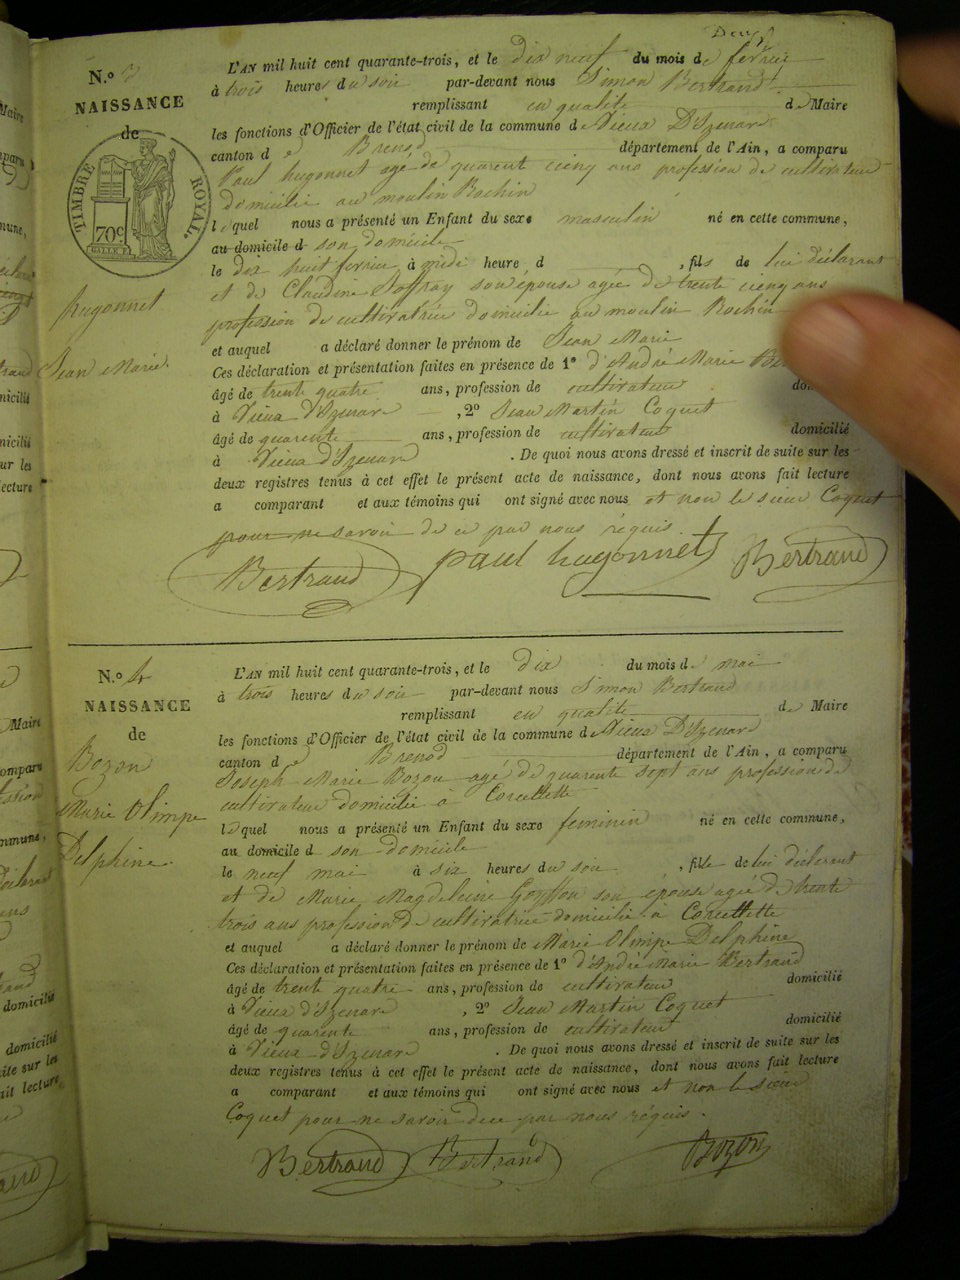 Deux
N.o 3
NAISSANCE
de
TIMBRE ROYAL.
70c
Hugonnet
Jean Marie.
L'AN mil huit cent quarante-trois, et le dix neuf du mois de février
à trois heures du soir par-devant nous Simon Bertrand
remplissant en qualité de Maire
les fonctions d'Officier de l'état civil de la commune de Vieux D'Izenave
canton de Brenod département de l'Ain, a comparu
Paul hugonnet agé de quarent cinq ans profession de cultivateur
domicilié au moulin Rochin
lequel nous a présenté un Enfant du sexe masculin né en cette commune,
au domicile d son domicile
le dix huit fevrier à midi heure d , fils de lui déclarant
et de Claudine Joffray son épouse agée de trente cinq ans
profession de cultivatrice domicilié au moulin Rochin
et auquel a déclaré donner le prénom de Jean Marie
Ces déclaration et présentation faites en présence de 1° d'André Marie
âgé de trente quatre ans, profession de cultivateur
à Vieux d'Izenave , 2° Jean Martin Coquet
âgé de quarente ans, profession de cultivateur domicilié
à Vieux d'Izenave . De quoi nous avons dressé et inscrit de suite sur les
deux registres tenus à cet effet le présent acte de naissance, dont nous avons fait lecture
a comparant et aux témoins qui ont signé avec nous et non le sieur Coquet
pour ne savoir de ce par nous réquis
Bertrand paul hugonnet Bertrand
N.o 4
NAISSANCE
de
Bozon
Marie Olimpe
Delphine.
L'AN mil huit cent quarante-trois, et le dix du mois de mai
à trois heures du soir par-devant nous Simon Bertrand
remplissant en qualité de Maire
les fonctions d'Officier de l'état civil de la commune de Vieux D'Izenave
canton de Brenod département de l'Ain, a comparu
Joseph Marie Bozon agé de quarente sept ans profession de
cultivateur domicilié à Corcelette
lequel nous a présenté un Enfant du sexe feminin né en cette commune,
au domicile d son domicile
le neuf mai à six heures du soir , fille de lui déclarant
et de Marie Magdeleine Goyffon son épouse agée de trente
trois ans profession de cultivatrice domicilié à Corcelette
et auquel a déclaré donner le prénom de Marie Olimpe Delphine
Ces déclaration et présentation faites en présence de 1° d'André Marie Bertrand
âgé de trente quatre ans, profession de cultivateur domicilié
à Vieux d'Izenave , 2° Jean Martin Coquet
âgé de quarente ans, profession de cultivateur domicilié
à Vieux d'Izenave . De quoi nous avons dressé et inscrit de suite sur les
deux registres tenus à cet effet le présent acte de naissance, dont nous avons fait lecture
a comparant et aux témoins qui ont signé avec nous et non le sieur
Coquet pour ne savoir de ce par nous réquis.
Bertrand Bertrand Bozon